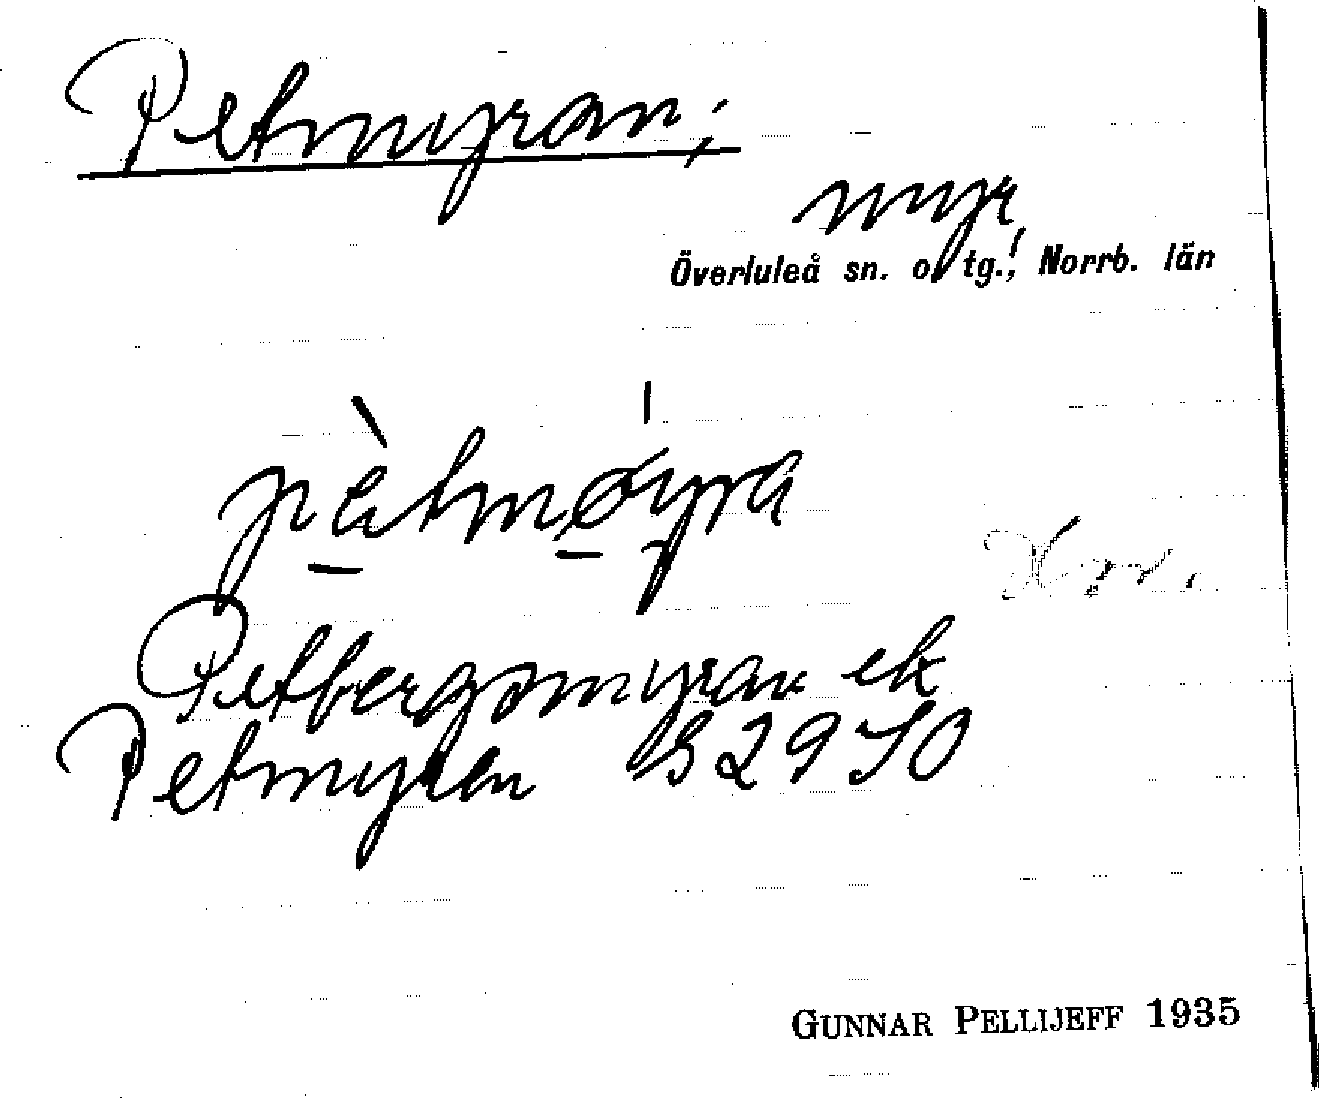 Petmyran;
myr
Överluleå sn. o. tg., Norrb. län
pètmøyra
Petbergsmyran ek
Petmyren S2970
GUNNAR PELLIJEFF 1935